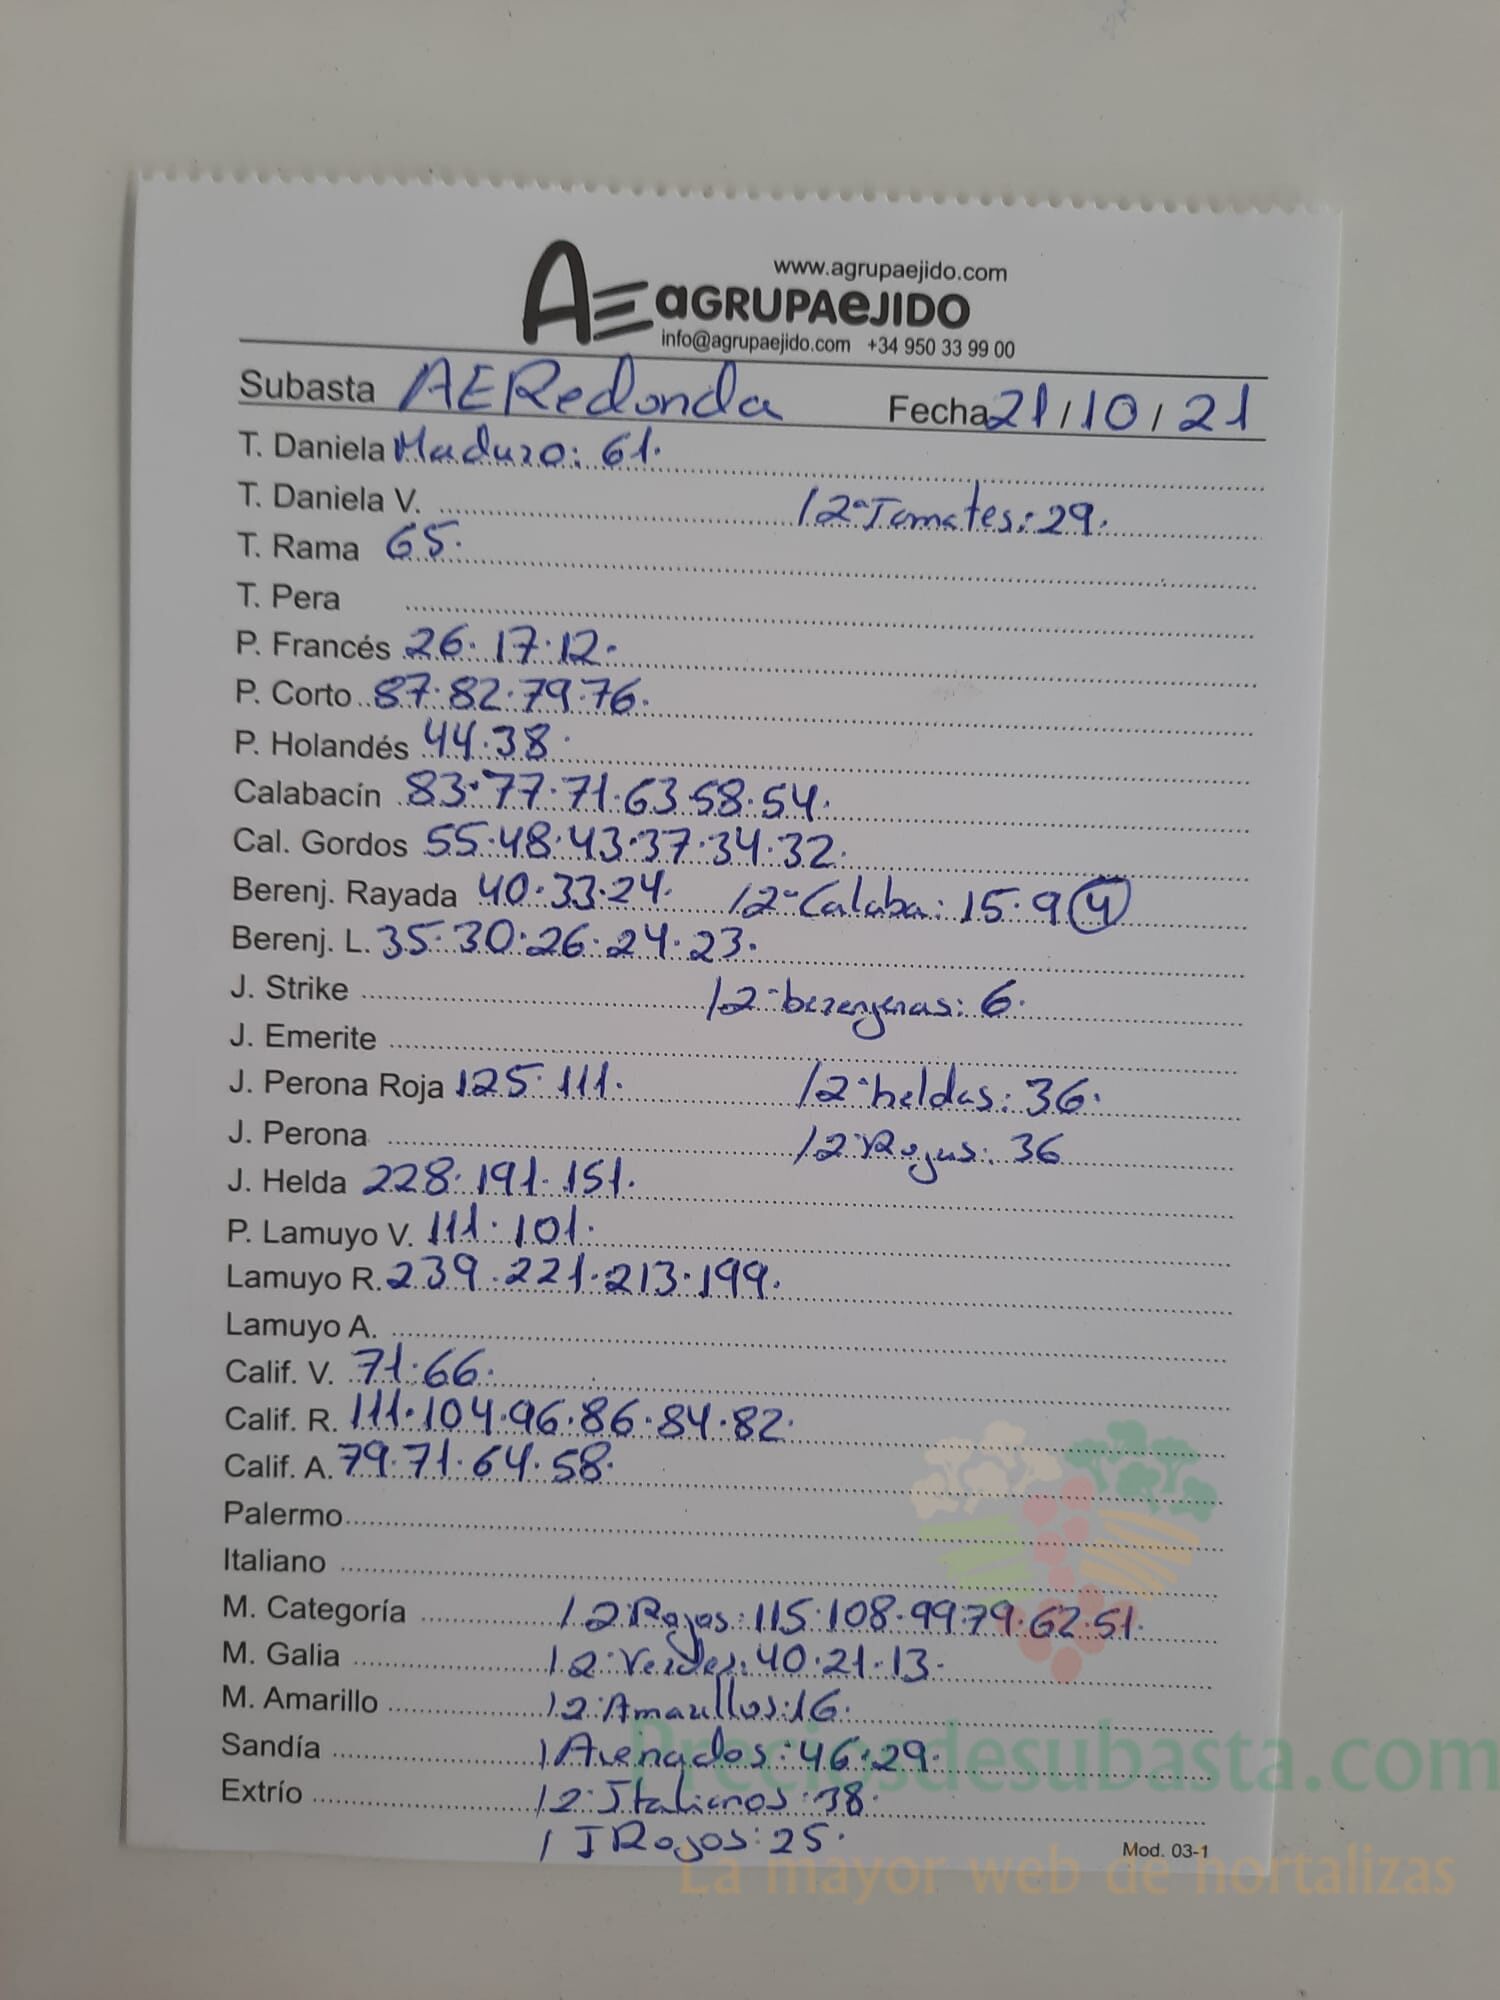 www.agrupaejido.com
AE aGRUPAeJIDO
info@agrupaejido.com +34 950 33 99 00
Subasta AERedonda Fecha 21/10/21
T. Daniela Maduro: 61.
T. Daniela V. /2ª Tomates: 29.
T. Rama 65.
T. Pera
P. Francés 26. 17. 12.
P. Corto 87. 82. 79. 76.
P. Holandés 44. 38.
Calabacín 83. 77. 71. 63. 58. 54.
Cal. Gordos 55. 48. 43. 37. 34. 32.
Berenj. Rayada 40. 33. 24. /2ª Calaba: 15. 9 (4)
Berenj. L. 35. 30. 26. 24. 23.
J. Strike /2ª berenjenas: 6.
J. Emerite
J. Perona Roja 125. 111. /2ª heldas: 36.
J. Perona /2ª Rojas: 36
J. Helda 228. 191. 151.
P. Lamuyo V. 111. 101.
Lamuyo R. 239. 221. 213. 199.
Lamuyo A.
Calif. V. 71. 66.
Calif. R. 111. 104. 96. 86. 84. 82.
Calif. A. 79. 71. 64. 58.
Palermo
Italiano
M. Categoría /2ª Rojos: 115. 108. 99. 79. 62. 51.
M. Galia /2ª Verdes: 40. 21. 13.
M. Amarillo /2ª Amarillos: 16.
Sandía /Asengados: 46. 29.
Extrío /2ª Italianos: 38.
/ I Rojos: 25.
Mod. 03-1
Preciosdesubasta.com
La mayor web de hortalizas